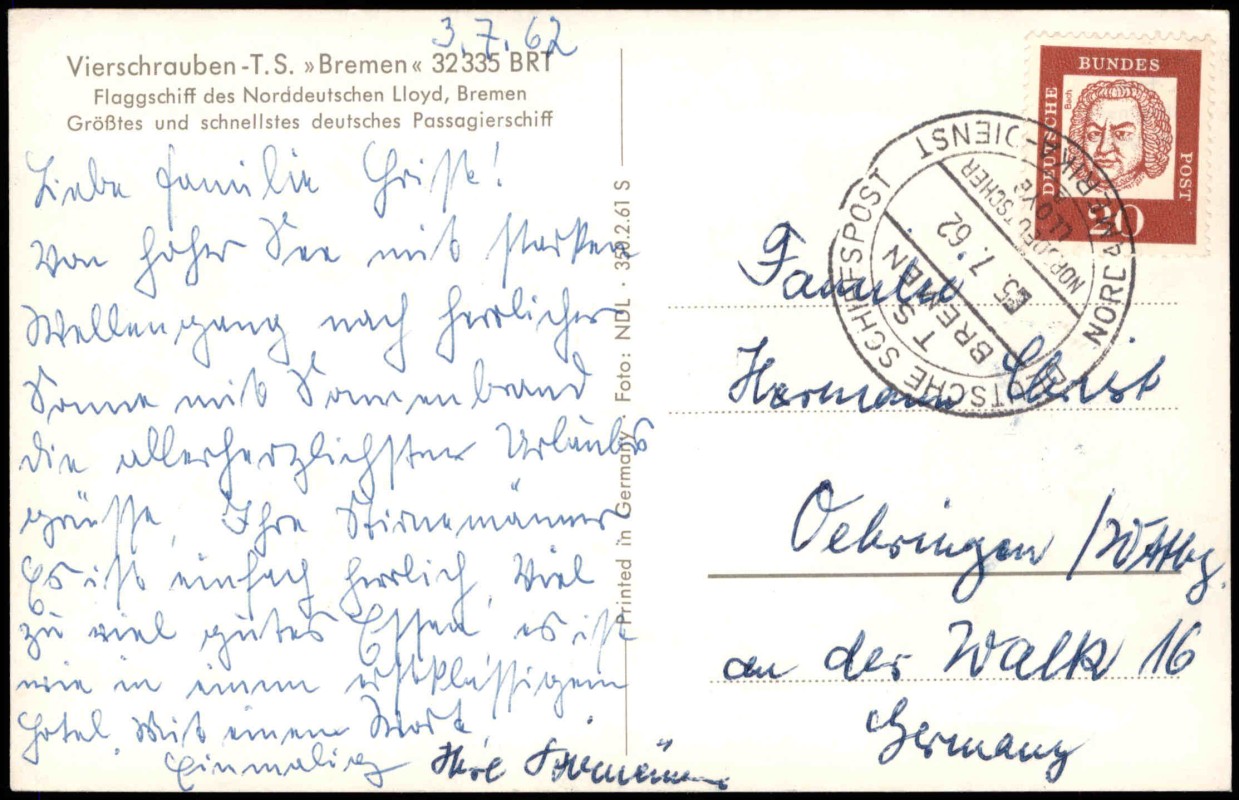 3.7.62
Vierschrauben-T.S. »Bremen« 32335 BRT
Flaggschiff des Norddeutschen Lloyd, Bremen
Größtes und schnellstes deutsches Passagierschiff
Liebe Familie Christ!
Von hoher See mit starken
Wellengang nach herrlicher
Sonne mit Sonnenbrand
die allerherzlichsten Urlaubs
grüsse. Ihre
Es ist einfach herrlich. Viel
zu viel gutes Essen, es ist
wie in einem erstklassigem
Hotel. Mit einem Wort
Einmalig Ihre
Printed in Germany · Foto: NDL · 350.2.61 S
DEUTSCHE BUNDES POST
Bach
20
DEUTSCHE SCHIFFSPOST
NORDAMERIKA-DIENST
NORDDEUTSCHER
LLOYD
5.7.62
T S
BREMEN
Familie
Hermann Christ
Oehringen /Württbg.
an der Walk 16
Germany